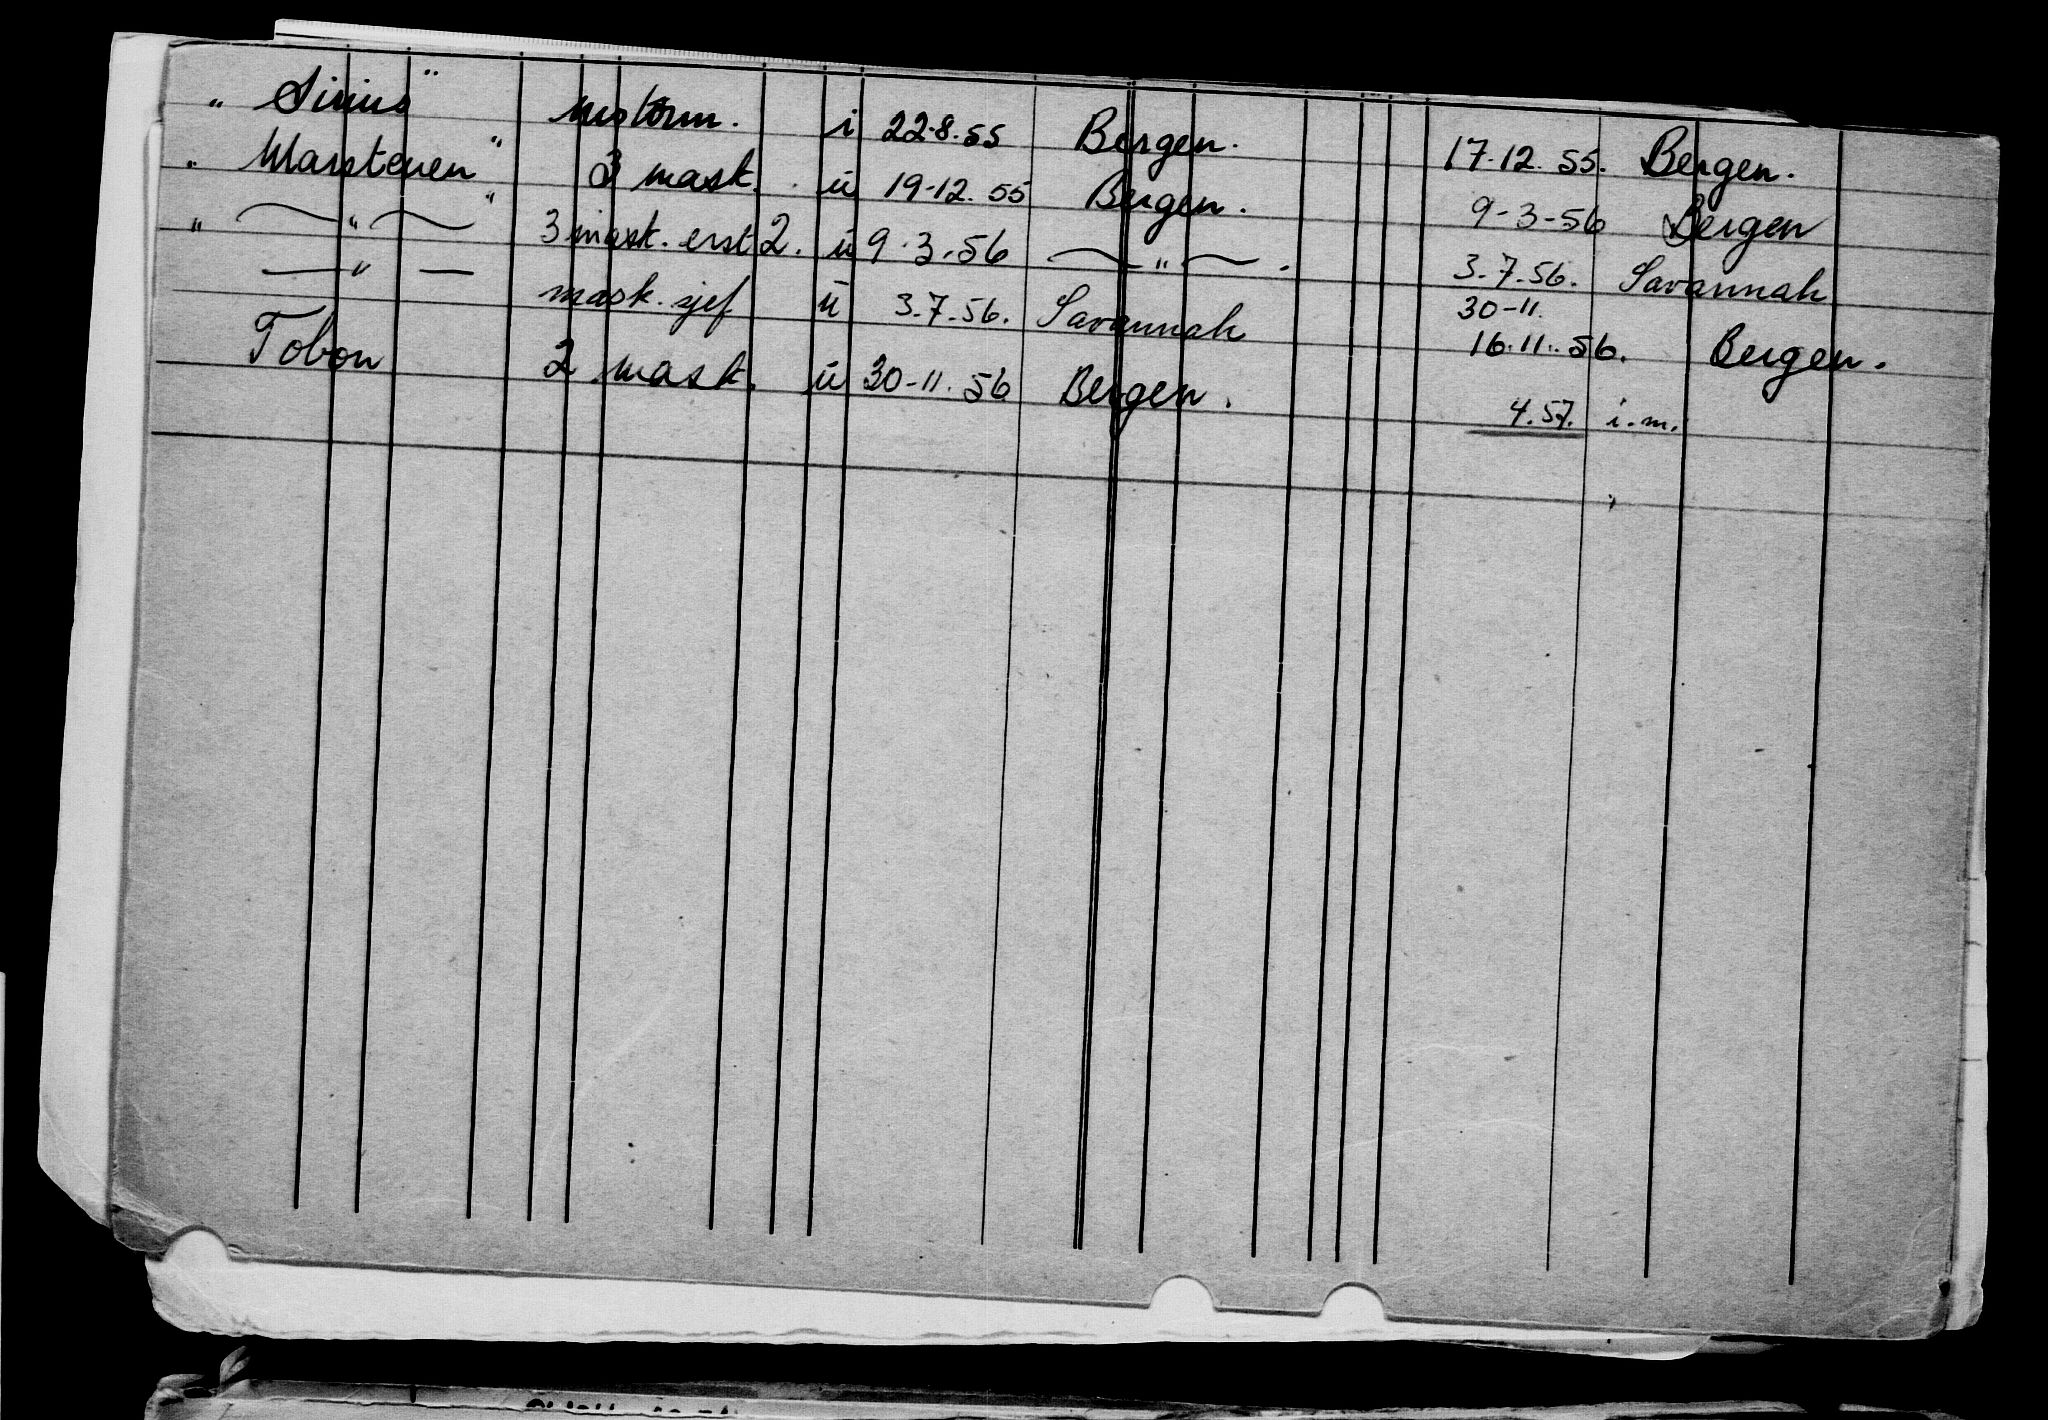 " Sirius " motorm. i 22.8.55 Bergen. 17.12.55. Bergen.
" Marsteinen " 3 mask. u 19-12.55 Bergen. 9-3-56 Bergen
" — " — " 3 mask. erst 2. u 9.3.56 — " — . 3.7.56. Savannah
— " — mask. sjef u 3.7.56. Savannah 30-11. 16.11.56. Bergen.
Tobon 2 mask. u 30-11.56 Bergen. 4.57. i.m.